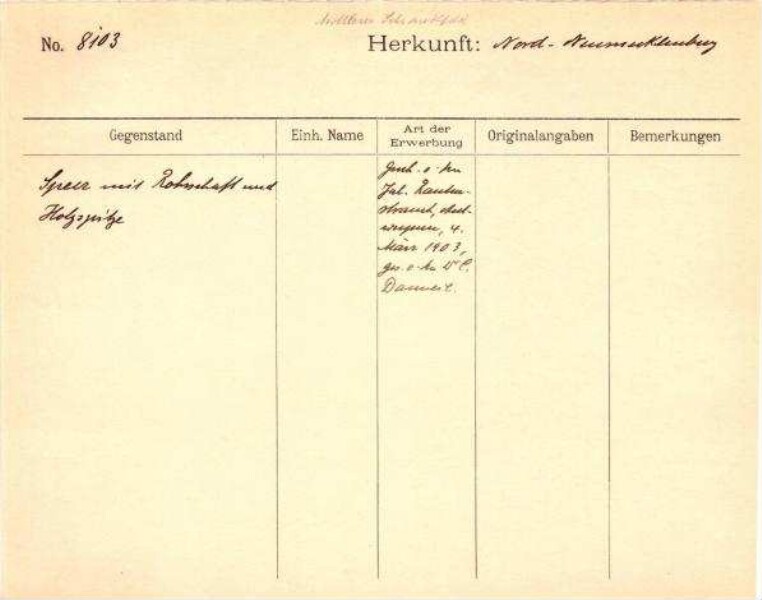 Mittlerer Schrank
No. 8103
Herkunft: Nord-Neumecklenburg
Gegenstand
Einh. Name
Art der Erwerbung
Originalangaben
Bemerkungen
Speer mit Rohrschaft und
Holzspitze
Gesch. v. Hrn
Jul. Rauten-
strauch, Ant-
werpen, 4.
März 1903,
ges. v. Hn Dr C.
Danneil.